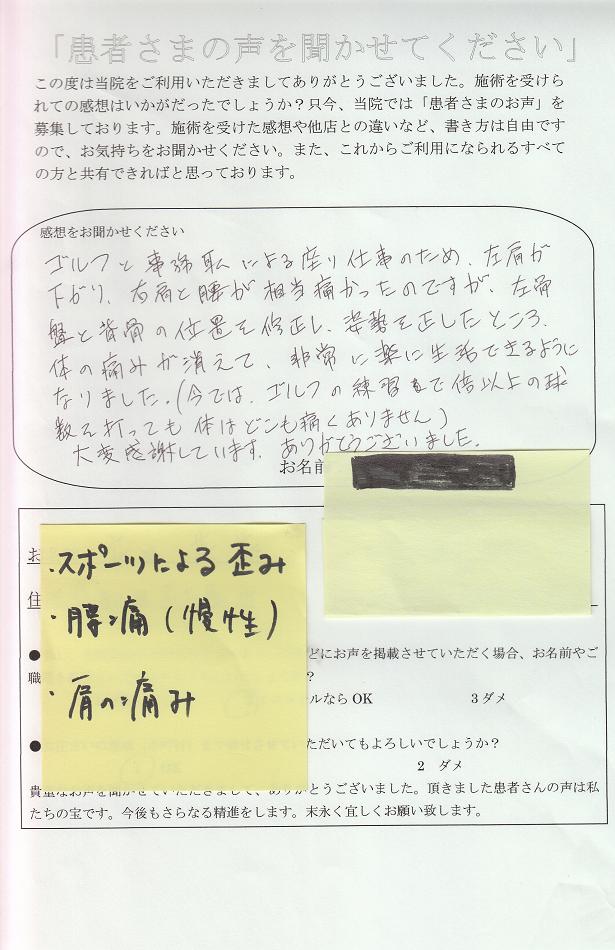 「患者さまの声を聞かせてください」
この度は当院をご利用いただきましてありがとうございました。施術を受けら
れての感想はいかがだったでしょうか？只今、当院では「患者さまのお声」を
募集しております。施術を受けた感想や他店との違いなど、書き方は自由です
ので、お気持ちをお聞かせください。また、これからご利用になられるすべて
の方と共有できればと思っております。
感想をお聞かせください
ゴルフと事務職による座り仕事のため、左肩が
下がり、右肩と腰が相当痛かったのですが、左骨
盤と背骨の位置を修正し、姿勢を正したところ、
体の痛みが消えて、非常に楽に生活できるように
なりました。(今では、ゴルフの練習まで倍以上の球
数を打っても体はどこも痛くありません)
大変感謝しています。ありがとうございました。
お名前
・スポーツによる歪み
・腰痛(慢性)
・肩の痛み
お
住
● どにお声を掲載させていただく場合、お名前やご
職 ？
ルなら OK 3ダメ
● ただいてもよろしいでしょうか？
2 ダメ
貴重なお声を聞かせていただきまして、ありがとうございました。頂きました患者さんの声は私
たちの宝です。今後もさらなる精進をします。末永く宜しくお願い致します。